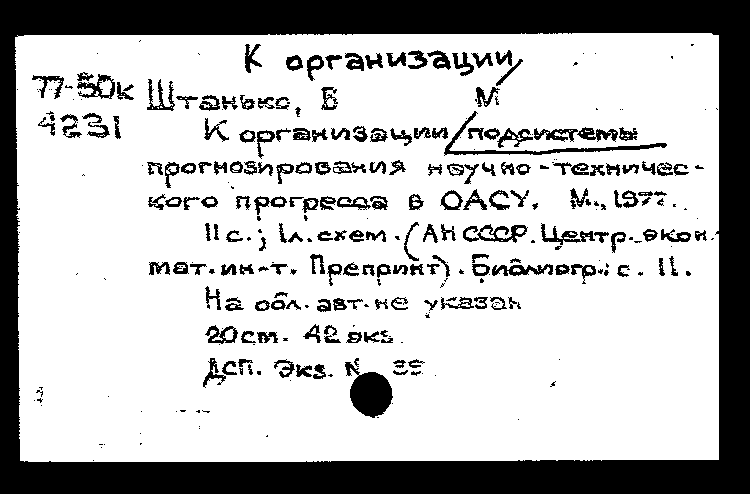 К организации
77-50к Штанько, В М
4231 К организации подсистемы
прогнозирования научно-техничес-
кого прогресса в ОАСУ. М., 1977.
11 с.; 1л. схем. (АН СССР. Центр. экон.-
мат. ин-т. Препринт). Библиогр.: с. 11.
На обл. авт. не указан
20 см. 42 экз.
ДСП. Экз. N